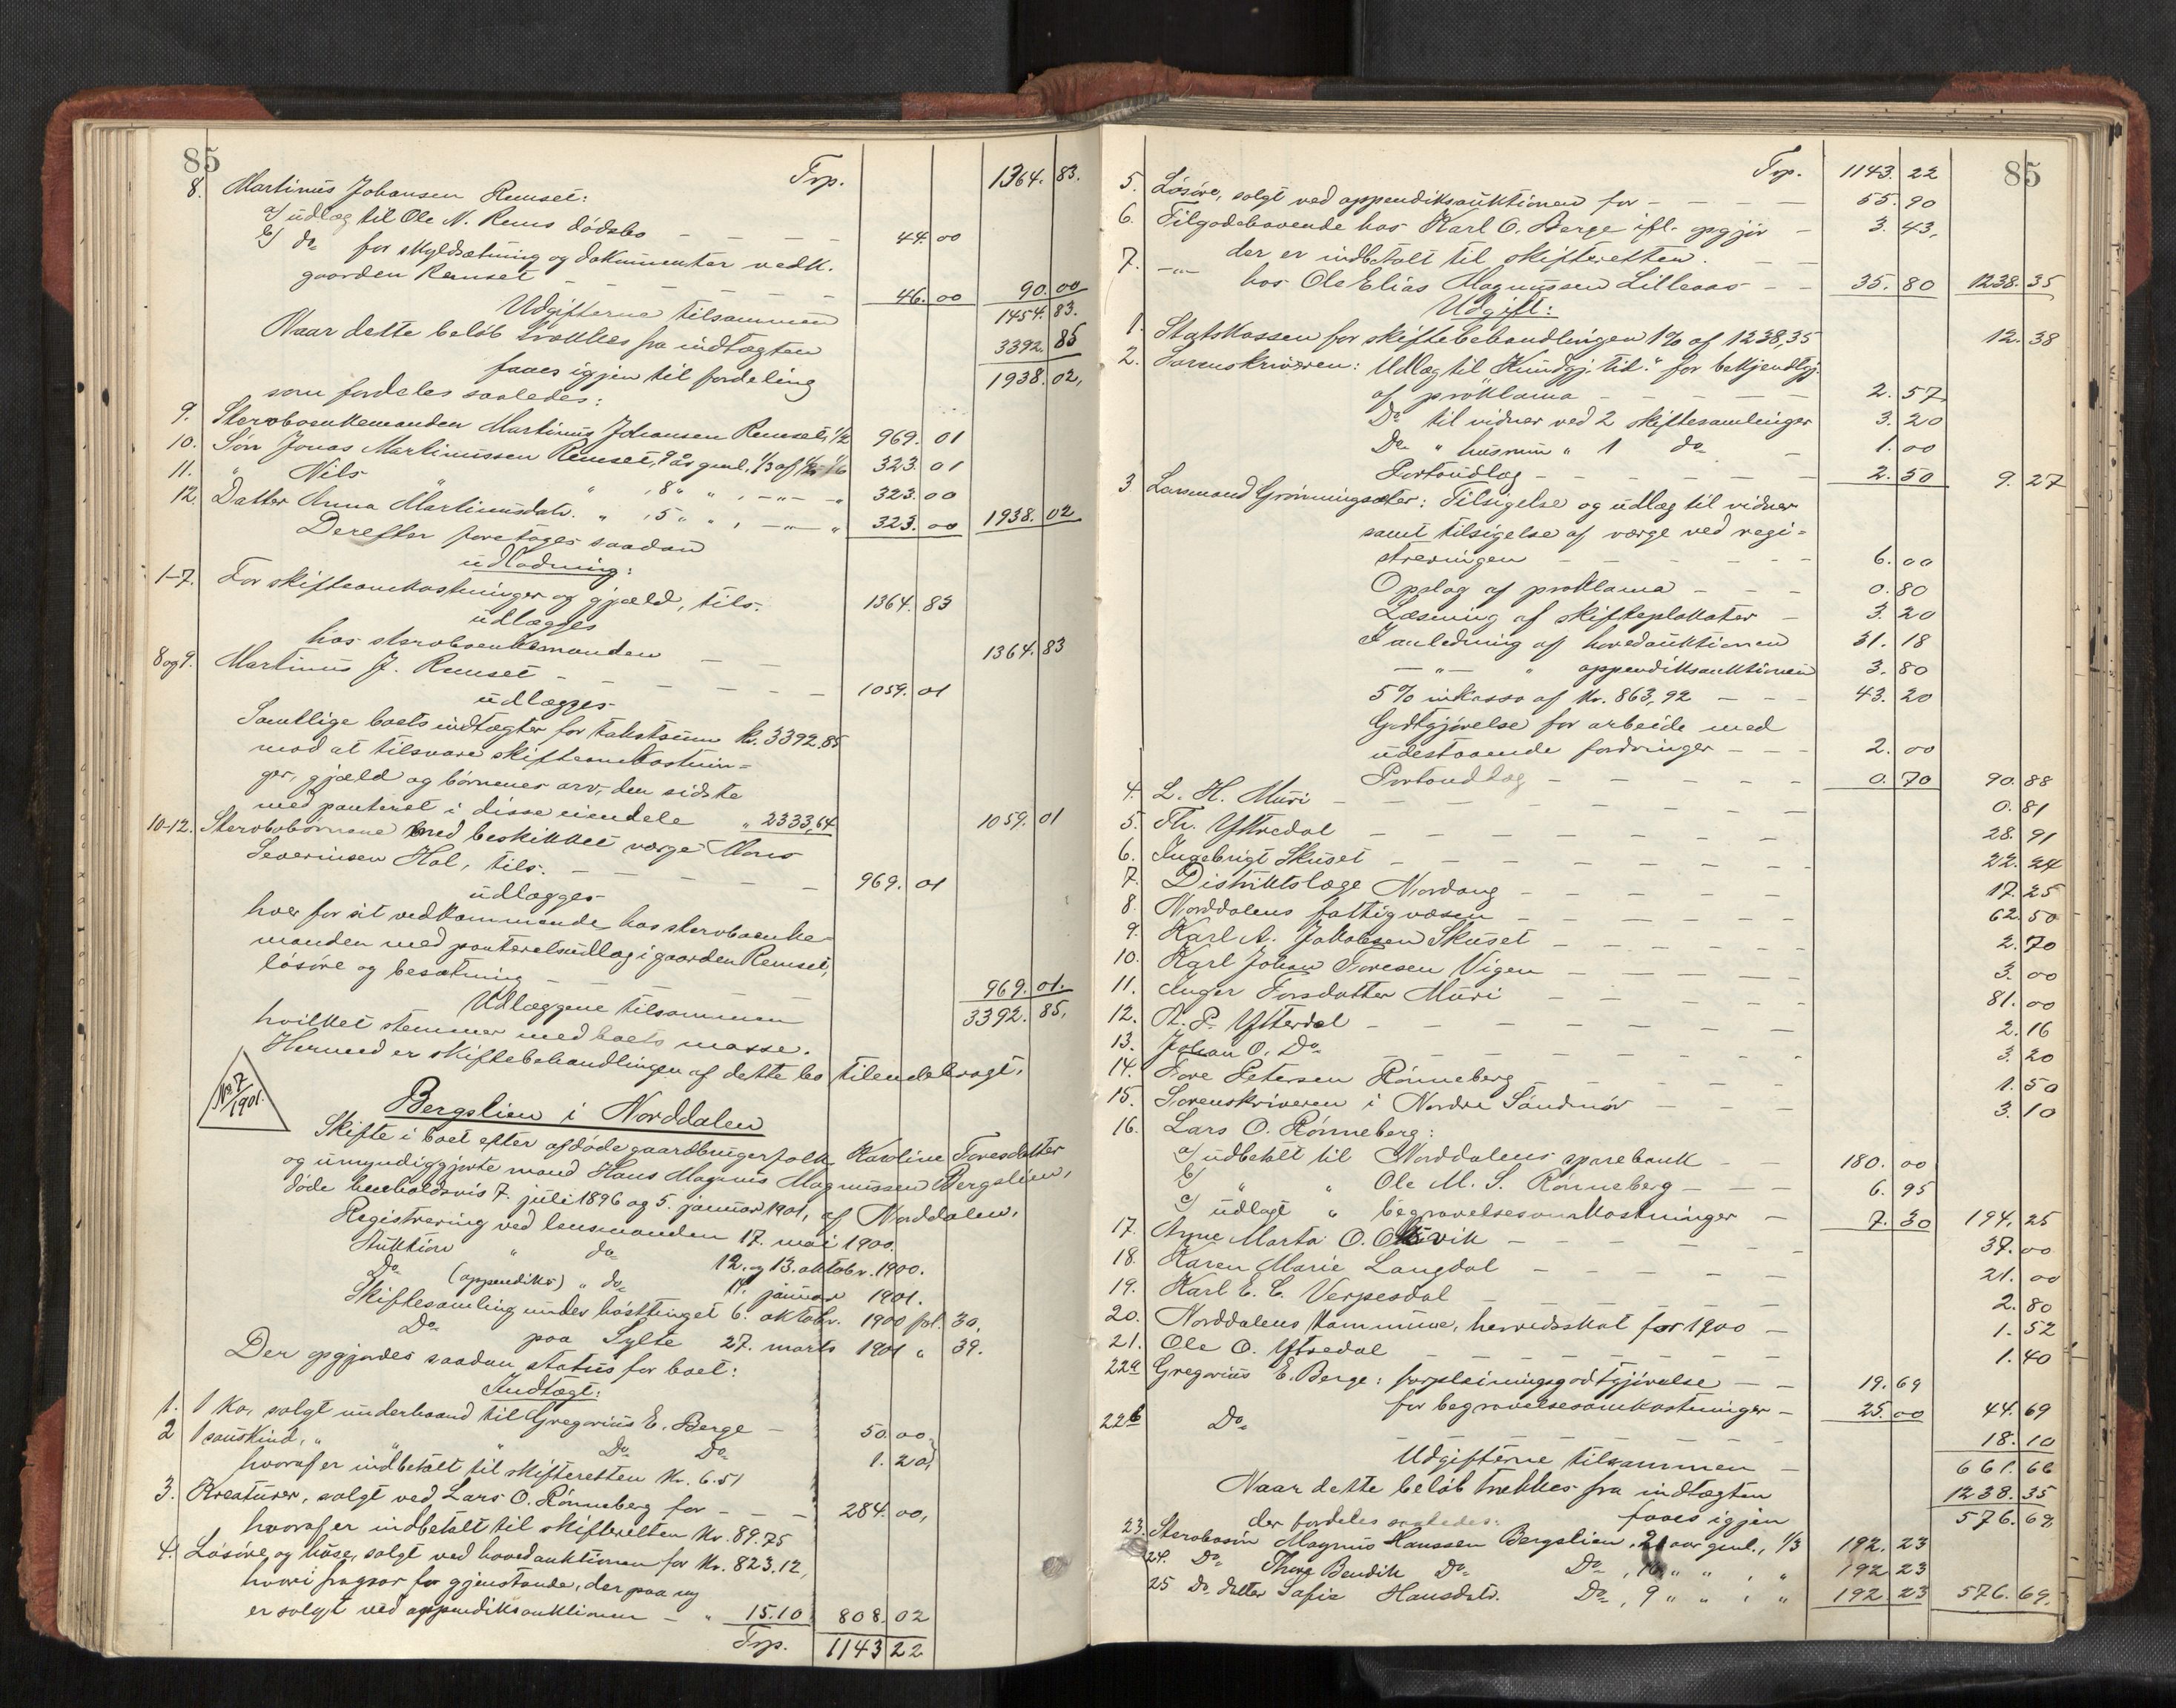 85
Trp. 1364. 83.
8. Martinus Johansen Remset:
a/ udlæg til Ole N. Rems dødsbo — — — — 44. 00
b/ do for skyldsætning og dokumenter vedk.
gaarden Remset — — — — — 46. 00 90. 00
Udgifterne tilsammen 1454. 83.
Naar dette beløb trækkes fra indtægten 3392. 85
faaes igjen til fordeling 1938. 02,
som fordeles saaledes:
9. Sterboenkemanden Martinus Johansen Remset, 1/2 969. 01
10. Søn Jonas Martinussen Remset, 9 år gml. 1/3 af 1/2 = 1/6 323. 01
11. " Nils " " , 8 " " , —"— " 323. 00
12. Datter Anna Martinusdatr. " , 5 " " , —"— " 323. 00 1938. 02
Derefter foretages saadan
udlodning:
1-7. For skifteomkostninger og gjæld, tils. 1364. 83
udlægges
hos sterboenkemanden — — 1364. 83
8 og 9. Martinus J. Remset — — — — — 1059. 01
udlægges
Samtlige boets indtægter for takstsum kr. 3392,85
mod at tilsvare skifteomkostnin=
ger, gjæld og børnenes arv, den sidste
med panteret i disse eiendele " 2333,64 1059. 01
10-12. Sterbobørnene med beskikket værge Mons
Severinsen Hol, tils. — — — — 969. 01
udlægges
hver for sit vedkommende hos sterboenke=
manden med panteretsudlæg i gaarden Remset,
løsøre og besætning — 969. 01.
Udlæggene tilsammen 3392. 85,
hvilket stemmer med boets masse.
Hermed er skiftebehandlingen af dette bo tilendebragt.
No. 7/1901.
Bergslien i Norddalen
Skifte i boet efter afdøde gaardbrugerfolk Karoline Toresdatter
og umyndiggjorte mand Hans Magnus Magnussen Bergslien,
døde henholdsvis 7. juli 1896 og 5. januar 1901, af Norddalen.
Registrering ved lensmanden 17. mai 1900.
Auktion " do 12. og 13. oktobr. 1900.
Do (appendiks) " do 11. januar 1901.
Skiftesamling under høsttinget 6. oktobr. 1900 fol. 30,
Do paa Sylte 27. marts 1901 " 39.
Der opgjordes saadan status for boet:
Indtægt:
1. 1 ko, solgt underhaand til Gregorius E. Berge — 50. 00,
2 1 saueskind, " " " Do Do 1. 20,
hvoraf er indbetalt til skifteretten kr. 6.51
3. Kreaturer, solgt ved Lars O. Rønneberg for — — — 284. 00,
hvoraf er indbetalt til skifteretten kr. 89.75
4. Løsøre og huse, solgt ved hovedauktionen for kr. 823.12,
hvori fragaar for gjenstande, der paa ny
er solgt ved appendiksauktionen — " 15.10 808. 02
Trp. 1143 22
85
Trp. 1143. 22
5. Løsøre, solgt ved appendiksauktionen for — — — — 55. 90
6. Tilgodehavende hos Karl O. Berge ifl. opgjør — 3. 43,
der er indbetalt til skifteretten.
7. —"— hos Ole Elias Magnussen Lilleaas — — 35. 80 1238. 35
Udgift:
1. Statskassen for skiftebehandlingen 1% af 1238,35 12. 38
2. Sorenskriveren: Udlæg til "Kundgj. tid." for bekjendtgj.
af proklama — — — — 2. 57
Do til vidner ved 2 skiftesamlinger 3. 20
Do " husrum " 1 do — 1. 00
Portoudlæg — — — — — 2. 50 9. 27
3 Lensmand Grønningsæter: Tilsigelse og udlæg til vidner
samt tilsigelse af værge ved regi=
streringen — — — — — 6. 00
Opslag af proklama — — — 0. 80
Læsning af skifteplakater — 3. 20
I anledning af hovedauktionen 31. 18
—"— " appendiksauktionen 3. 80
5% inkasso af kr. 863,92 — — — 43. 20
Godtgjørelse for arbeide med
udestaaende fordringer — — — 2. 00
Portoudlæg — — — — — 0. 70 90. 88
4. L. H. Muri — — — — — — 0. 81
5. Th. Yttredal — — — — — — 28. 91
6. Ingebrigt Skuset — — — — — — 22. 24
7. Distriktslæge Nordang — — — — — 17. 25
8. Norddalens fattigvæsen — — — — — 62. 50
9. Karl A. Jakobsen Skuset — — — — — 2. 70
10. Karl Johan Toresen Vigen — — — — 3. 00
11. Inger Torsdatter Muri — — — — 81. 00
12. A. P. Ytterdal — — — — — — 2. 16
13. Johan O. Do — — — — — — 3. 20
14. Tore Petersen Rønneberg — — — — — 1. 50
15. Sorenskriveren i Nordre Søndmør — — — 3. 10
16. Lars O. Rønneberg:
a/ udbetalt til Norddalens sparebank — — 180. 00
b/ " " Ole M. S. Rønneberg — — — 6. 95
c/ udlagt " begravelsesomkostninger — 7. 30 194. 25
17. Anne Marta O. vik — — — — 37. 00
18. Karen Marie Langdal — — — — — 21. 00
19. Karl E. E. Verpesdal — — — — — 2. 80
20. Norddalens kommune, herredsskat for 1900 — 1. 52
21. Ole O. Yttredal — — — — — — 1. 40
22a Gregorius E. Berge: forpleiningsgodtgjørelse — — 19. 69
for begravelsesomkostninger — 25. 00 44. 69
22b Do — — — — — — 18. 10
Udgifterne tilsammen — 661. 66
Naar dette beløb trækkes fra indtægten 1238. 35
faaes igjen 576. 69,
der fordeles saaledes:
23. Sterbosøn Magnus Hanssen Bergslien, 21 aar gml., 1/3 192. 23
24. Do Thore Bendik Do Do , 16 " " , " 192 23
25 Do datter Sofie Hansdatr. Do , 9 " " , " 192. 23 576. 69.